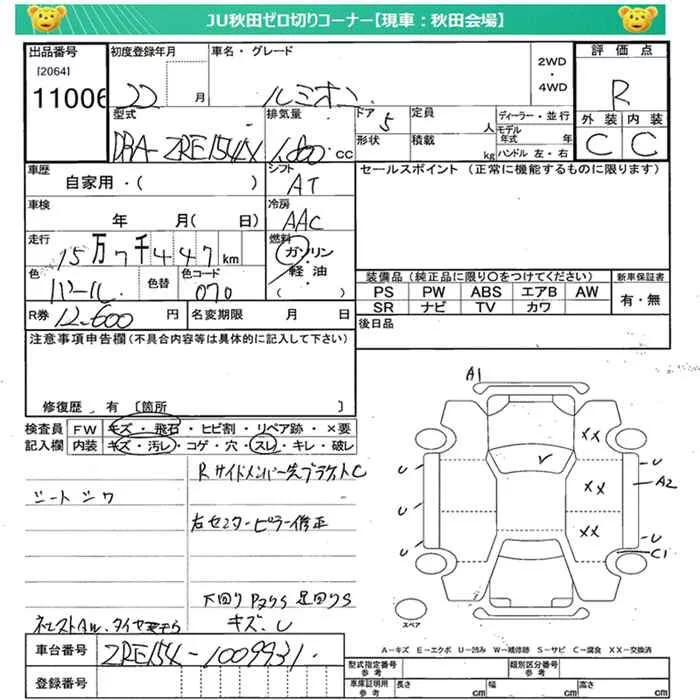 JU秋田ゼロ切りコーナー【現車：秋田会場】
出品番号 初度登録年月 車名・グレード 2WD・4WD 評価点
[2064]
11006 22 月 ルミオン R
型式 排気量 ドア 定員 人 ディーラー・並行 外装 内装
DBA-ZRE154X 1,800 cc 5 形状 積載 kg モデル年式 年 ハンドル 左・右 C C
車歴 シフト セールスポイント（正常に機能するものに限ります）
自家用・（ ） AT
車検 冷房
年 月（ 日） AAC
走行 燃料
15万7千447km ガソリン・軽油（ ）
色 色替 色コード 装備品（純正品に限り〇をつけてください） 新車保証書
パール 070 PS PW ABS エアB AW 有・無
SR ナビ TV カワ
R券 12,600 円 名変期限 月 日 後日品
注意事項申告欄（不具合内容等は具体的に記入して下さい）
修復歴 有 [箇所 ]
検査員記入欄 FW キズ・飛石・ヒビ割・リペア跡・×要
内装 キズ・汚レ・コゲ・穴・スレ・キレ・破レ
Rサイドメンバー先ブラケットC
シートシワ
右センターピラー修正
下回りPサビS 足回りS
キズ、U
A1
XX
U U
XX A2
U XX
U U
C1
スペア
A－キズ E－エクボ U－凹み W－補修跡 S－サビ C－腐食 XX－交換済
車台番号 ZRE154-1009931
登録番号
型式指定番号参考 類別区分番号参考
車庫証明用参考 長さ cm 幅 cm 高さ cm